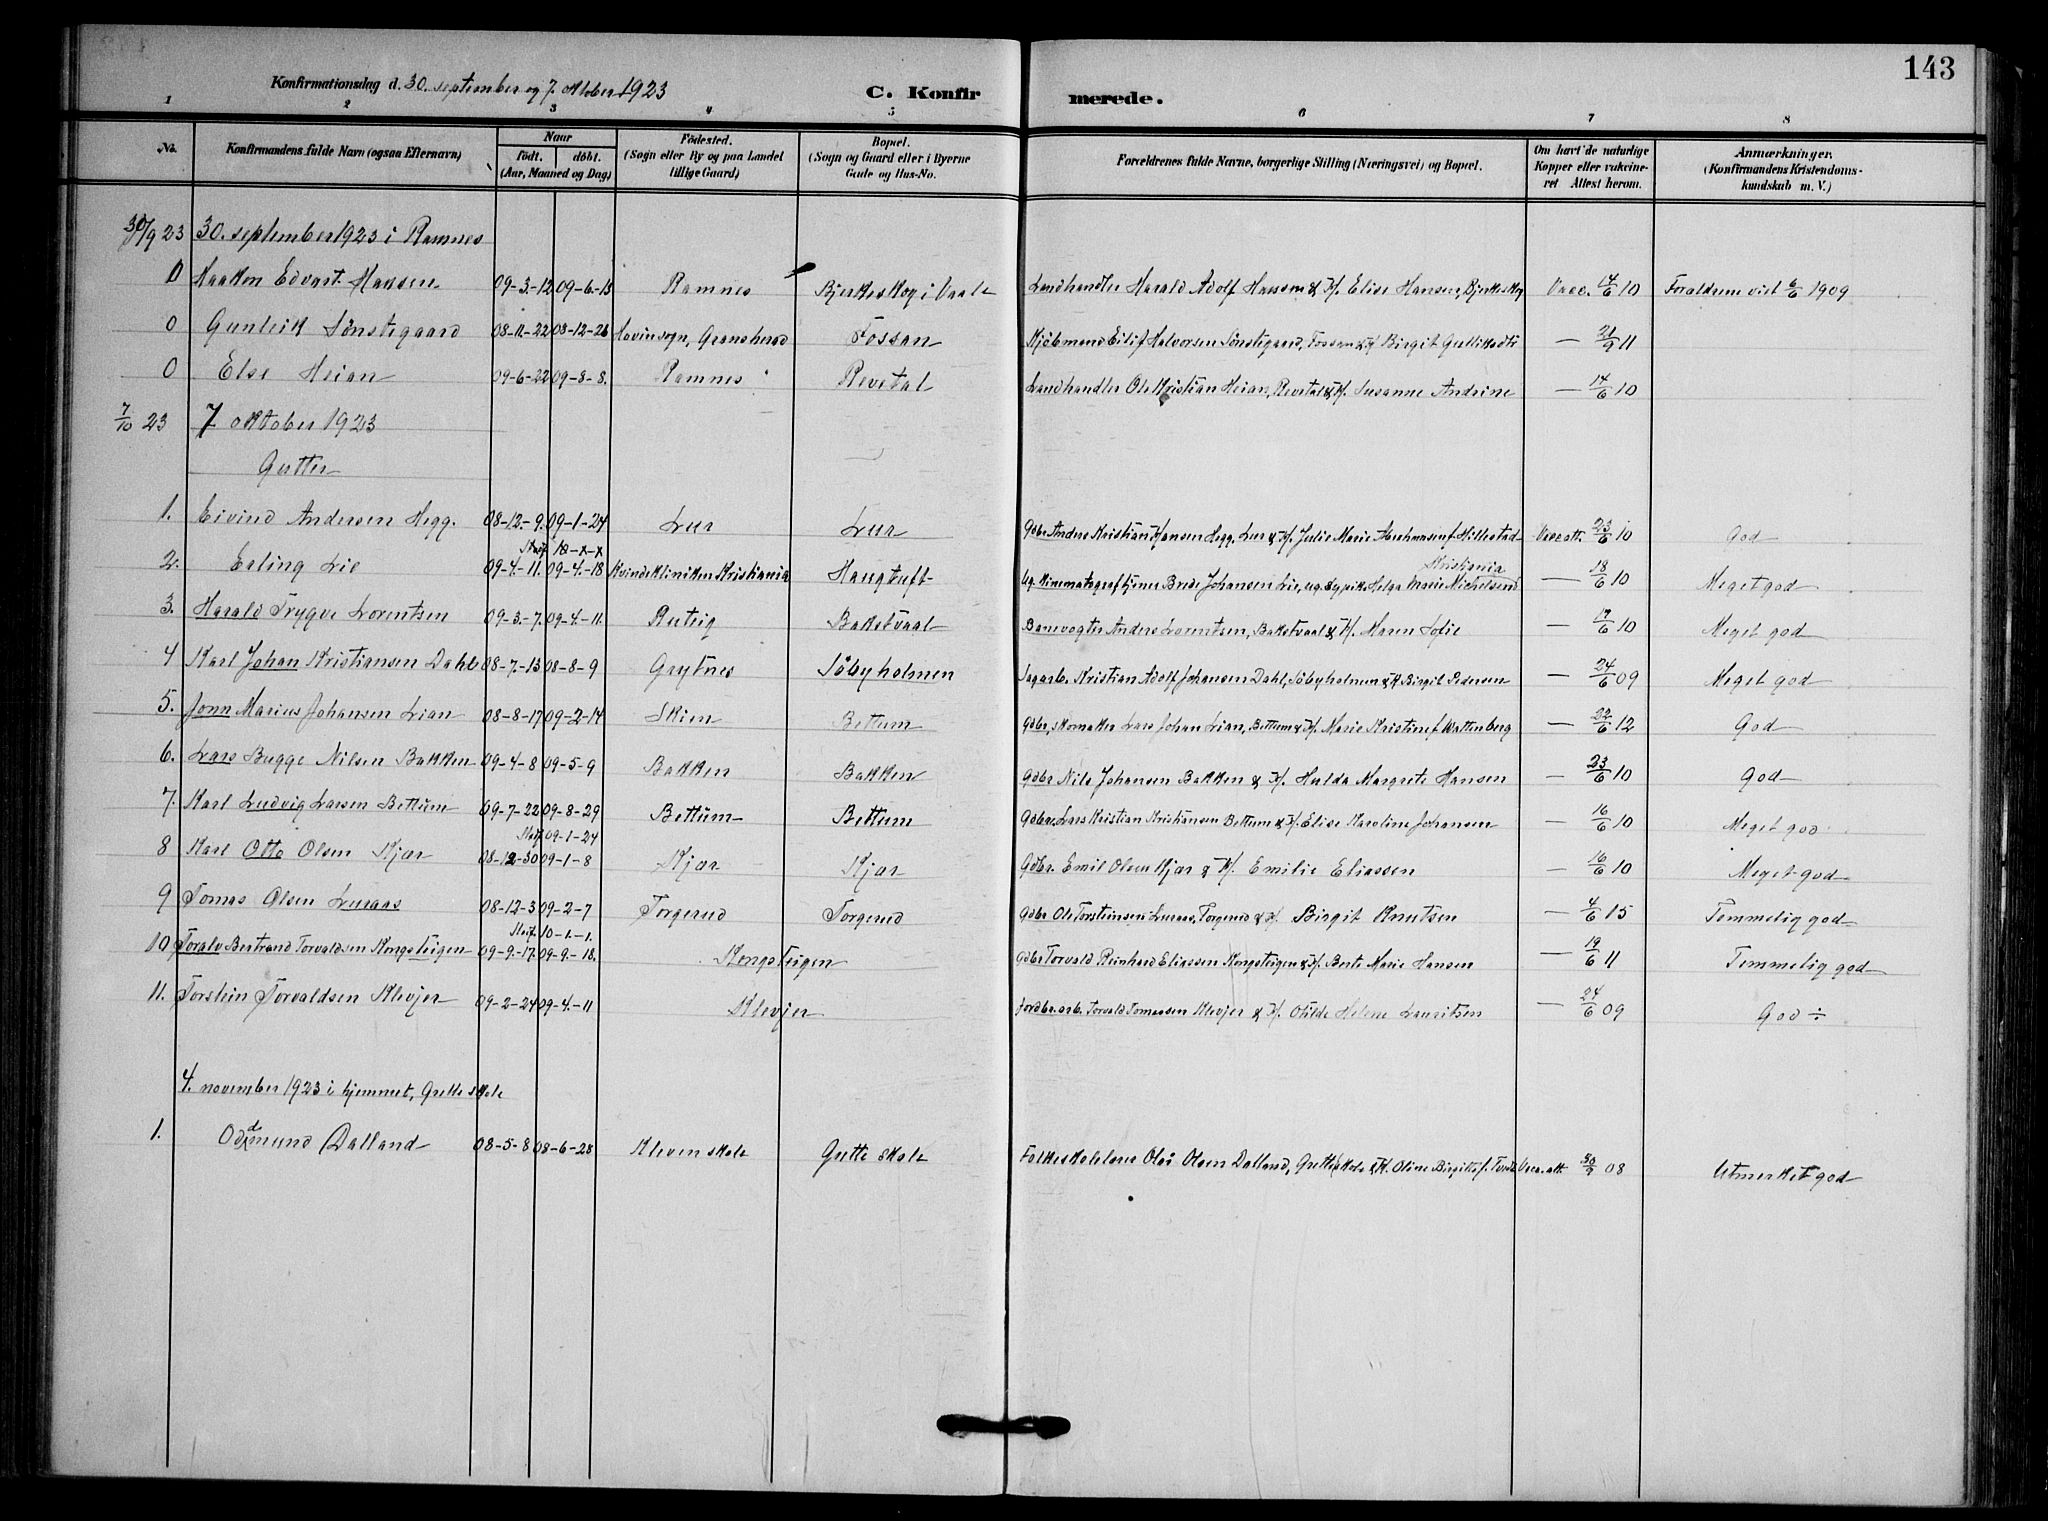 143
Konfirmationsdag d. 30. september og 7. oktober 1923
C. Konfirmerede.
1 2 3 4 5 6 7 8
No. Konfirmandens fulde Navn (ogsaa Efternavn) Naar födt. döbt. (Aar, Maaned og Dag) Födested. (Sogn eller By og paa Landet tillige Gaard) Bopæl. (Sogn og Gaard eller i Byerne Gade og Hus-No. Forældrenes fulde Navne, borgerlige Stilling (Næringsvei) og Bopæl. Om havt de naturlige Kopper eller vakcineret Attest herom. Anmærkninger. (Konfirmandens Kristendomskundskab m. V.)
30/9 23 30. september 1923 i Ramnes
0 Haakon Edvart Hansen 09-3-12 09-6-13 Ramnes Bjerkeskog i Vaale Landhandler Harald Adolf Hansen & H. Elise Hansen, Bjerkeskog Vacc. 14/6 10 Forældrene viet 6/6 1909
0 Gunleik Sönstegaard 08-11-22 08-12-26 Hovin sogn, Gransherad Fossan Kjöbmand Eilif Halvorsen Sönstegaard, Fossan & H. Birgit — 21/9 11
0 Else Heian 09-6-22 09-8-8. Ramnes Revetal Landhandler Ole Kristian Heian, Revetal & H. Susanne Andrine — 14/6 10
7/10 23 7 oktober 1923
Gutter
1. Eivind Andersen Hegg. 08-12-9. 09-1-24 Lur Lur Gdbr. Anders Kristian Hansen Hegg, Lur & H. Julie Marie f Hillestad Vacc att. 23/6 10 God
2. Erling Lie 09-4-11. 09-4-18 Kvindeklinikken Kristiania Haugtuft Ug. Kinematograftjener Brede Johansen Lie, ug. Helga Marie Michelsend Kristiania — 18/6 10 Meget god
3. Harald Trygve Lorentsen 09-3-7. 09-4-11. Rutsig Bakstvaal Banevogter Anders Lorentsen, Bakstvaal & H. Maren Sofie — 17/6 10 Meget god
4 Karl Johan Kristiansen Dahl 08-7-13 08-8-9 Grytnes Söbyholmen Sagarb. Kristian Adolf Johansen Dahl, Söbyholmen & H Birgit Pedersen — 24/6 09 Meget god
5. Jonn Marius Johansen Lian 08-8-17 09-2-14 Skien Bettum Gdbr, skomaker Lars Johan Lian, Bettum & H. Marie Kristine f Wattenberg — 22/6 12 God
6. Lars Bugge Nilsen Bakken 09-4-8 09-5-9 Bakken Bakken Gdbr Nils Johansen Bakken & H. Hulda Margrete Hansen — 23/6 10 God
7. Karl Ludvig Larsen Bettum 09-7-22 09-8-29 Bettum Bettum Gdbr. Lars Kristian Kristiansen Bettum & H. Elise Karoline Johansen — 16/6 10 Meget god
8 Karl Otto Olsen Kjær 08-12-30 09-1-8 09-1-24 Kjær Kjær Gdbr. Emil Olsen Kjær & H. Emilie Eliassen — 16/6 10 Meget god
9 Tomas Olsen Luraas 08-12-3 09-2-7 Torgerud Torgerud Gdbr Ole Torsteinsen Luraas, Torgerud & H Birgit Knutsen — 4/6 15 Temmelig god
10 Toralv Bertrand Torvaldsen Kongsteigen 09-9-17. 09-9-18. 10-1-1. Kongsteigen Gdbr Torvald Reinhard Eliassen Kongsteigen & H. Berte Marie Hansen — 19/6 11 Temmelig god
11. Torstein Torvaldsen Klevjer 09-2-24 09-4-11 Klevjer Jordbr.arb. Torvald Tomassen Klevjer & H. Otilde Helene Lauritsen — 24/6 09 God ÷
4. november 1923 i hjemmet, Grette skole
1. Oddmund Dalland 08-5-8 08-6-28 Kleven skole Grette skole Folkeskolelærer Olai Olsen Dalland, Grette skole & H. Oline Birgitte f. Vacc. att 30/9 08 Utmerket god